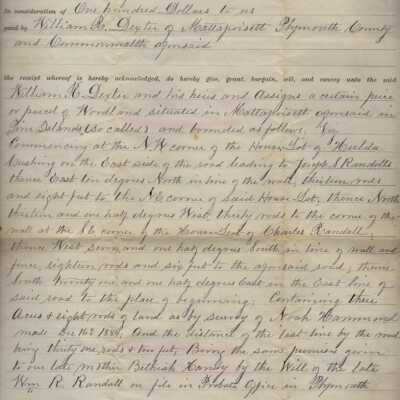 In consideration of One hundred Dollars to us
paid by William R. Dexter of Mattapoisett Plymouth County
and Commonwealth aforesaid
the receipt whereof is hereby acknowledged, do hereby give, grant, bargain, sell, and convey unto the said
William R. Dexter and his heirs and Assigns a certain piece
or parcel of Woodland situated in Mattapoisett aforesaid in
Pine Islands (so called) and bounded as follows,
Commencing at the N.W. corner of the House Lot of Hulda
Cushing on the East side of the road leading to Joseph S Randalls
thence East ten degrees North in line of the wall, thirteen rods
and eight feet to the N.E. corner of said House Lot, thence North
thirteen and one half degrees West, thirty rods to the corner of the
wall at the S.E. corner of the House Lot of Charles Randall,
thence West seven and one half degrees South, in line of wall and
fence, eighteen rods and six feet to the aforesaid road, thence
South twenty one and one half degrees East in the East line of
said road to the place of beginning. Containing three
Acres & eight rods of land as by survey of Noah Hammond
made Dec 16th And the distance of the last line by the road
being thirty one rods & ten feet, Being the same premises given
to our late mother Bethiah Handy by the Will of the late
Wm R. Randall on file in Probate Office in Plymouth